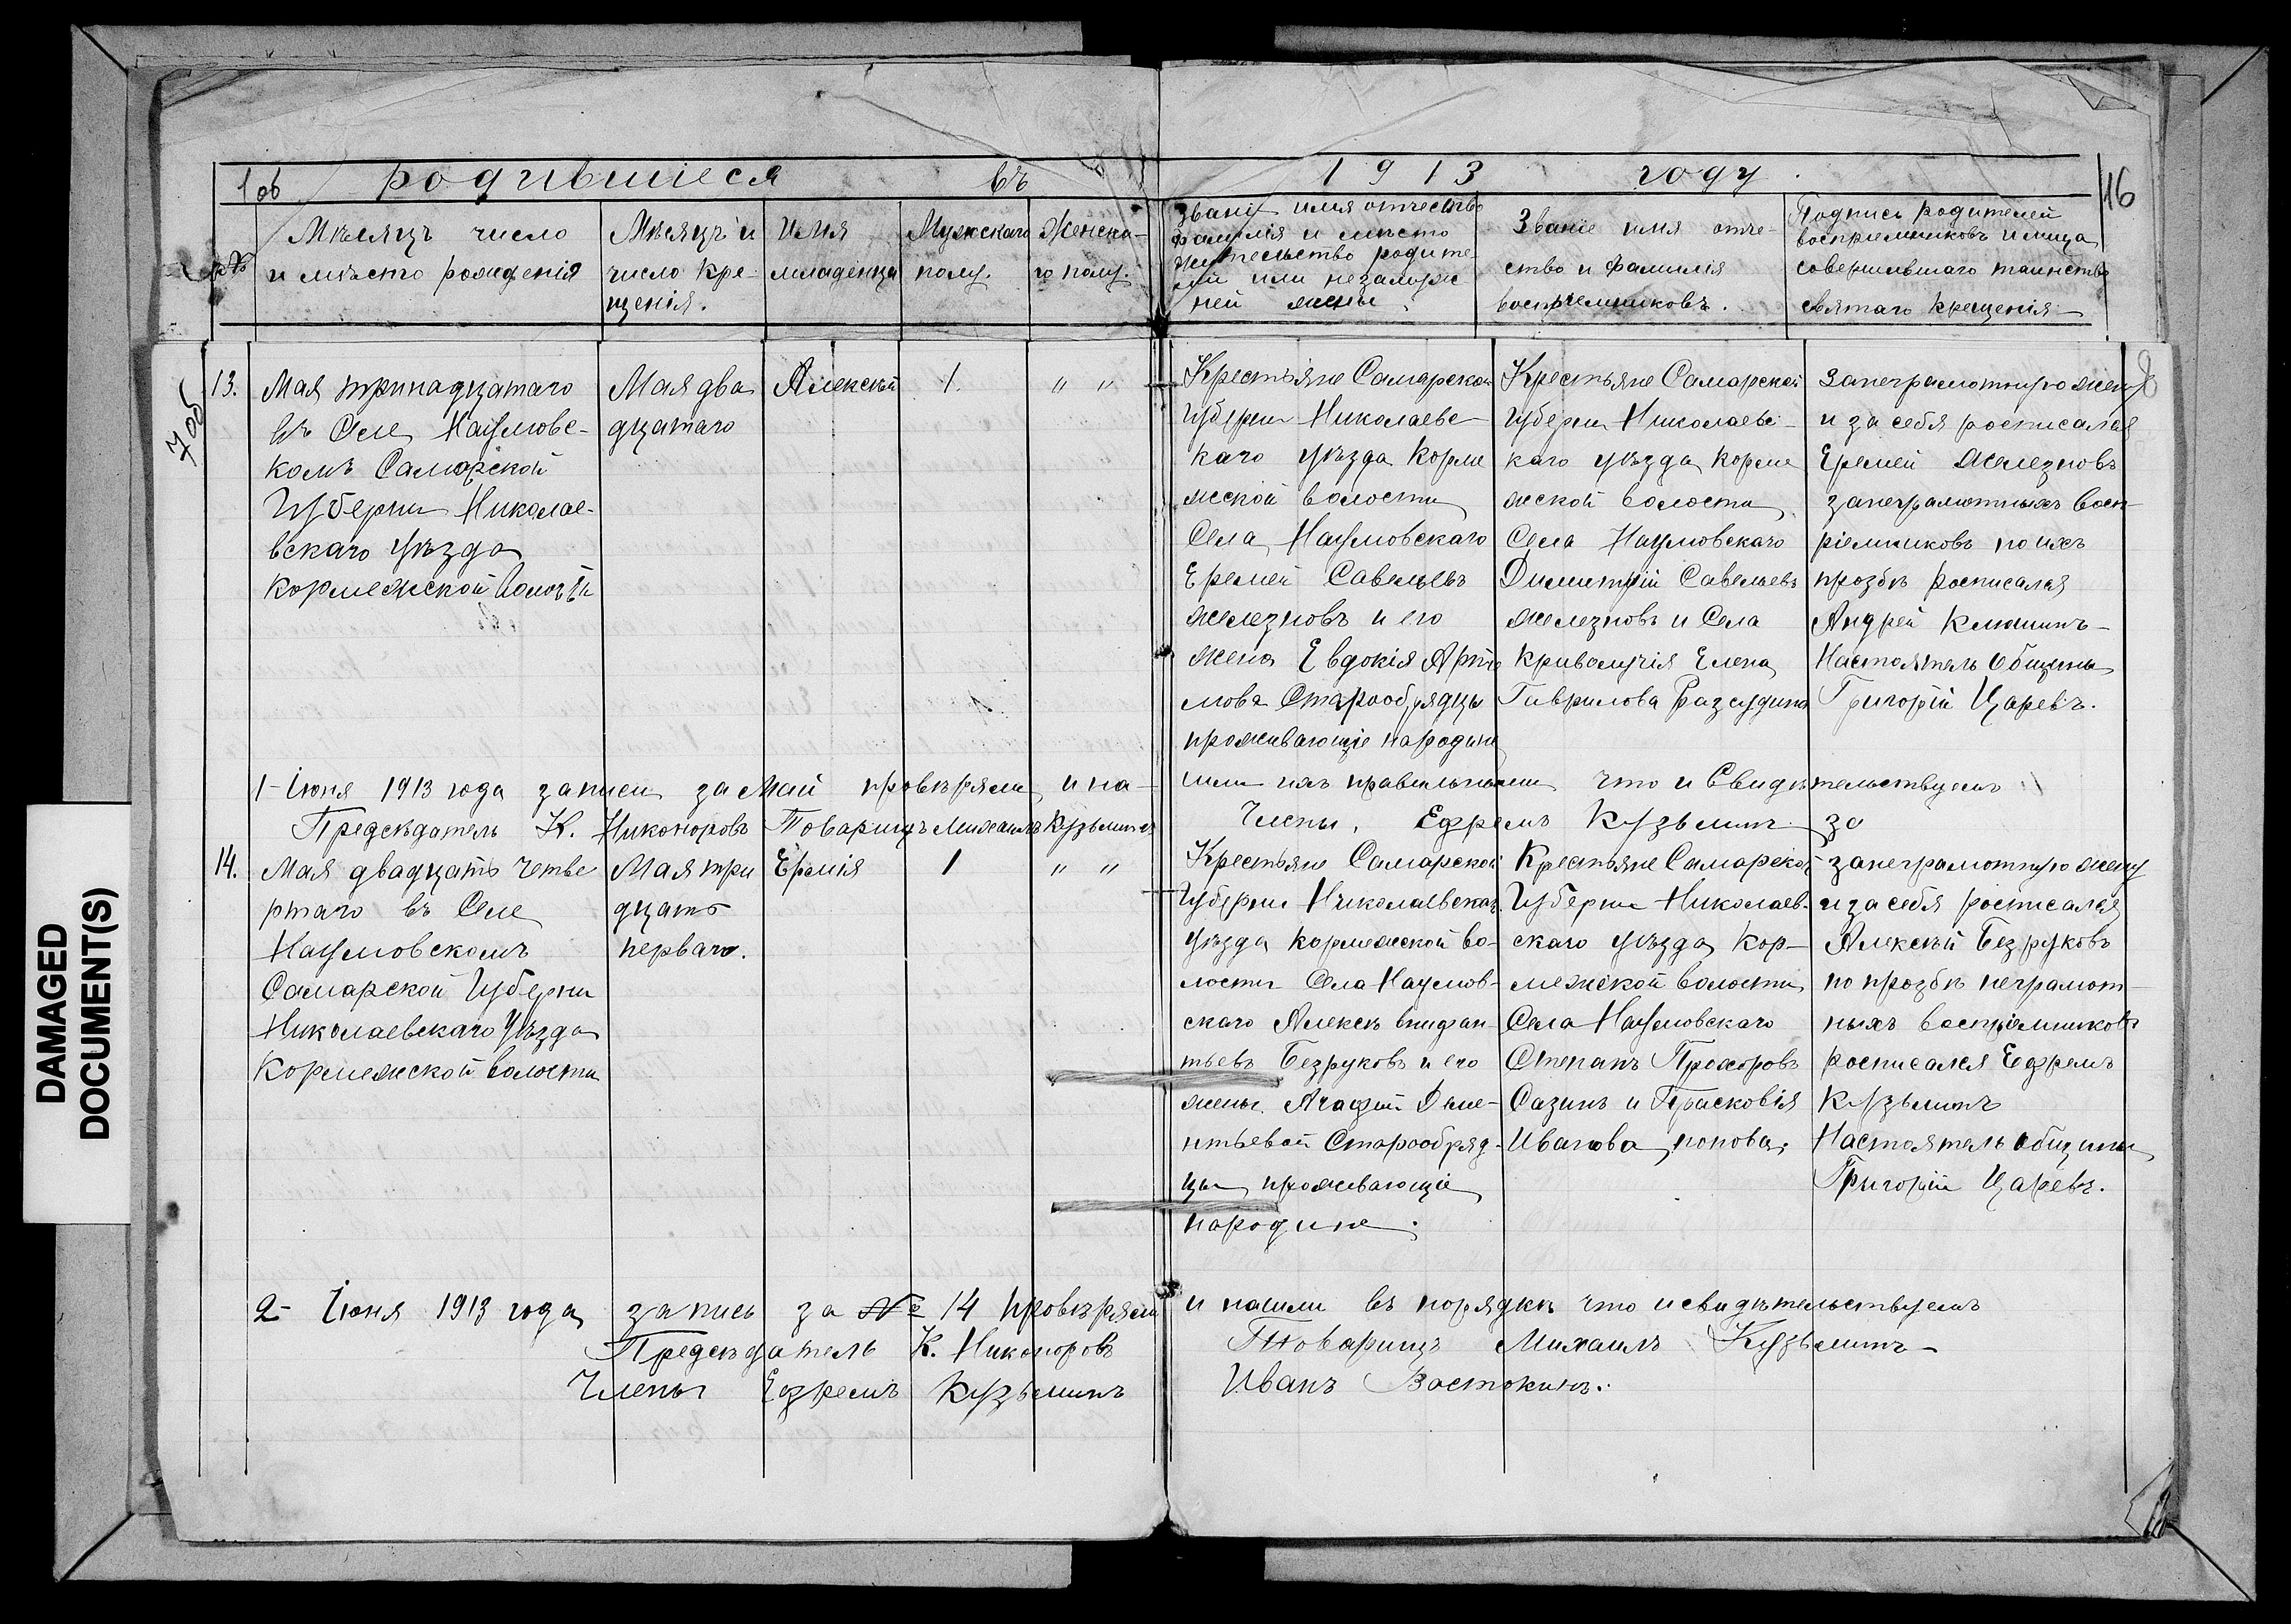 1 об родившиеся въ 1913 году. 16
№
Мѣсяцъ число
и мѣсто рожденія
Мѣсяцъ и
число кре-
щенія.
Имя
младенца
Мужскаго
полу.
Женска-
го полу.
Званіе имя отчество
фамилія и мѣсто
жительство родите-
лей или незамуж
ней жены
Званіе имя отче-
ство и фамилія
воспріемниковъ.
Подпись родителей
воспріемниковъ и лица
совершившаго таинство
святаго крещенія
7 об
8
13.
Мая тринадцатаго
въ Селе Наумовс-
комъ Самарской
Губерни Николае-
вскаго уѣзда
Кормежской волости
Мая два
дцатаго
Алексѣй
1.
" "
Крестьяне Самарской
Губерни Николаевс-
каго уѣзда Корме
жской волости
Села Наумовскаго
Еремей Савельевъ
Железновъ и его
жена Евдокія Арте
мова Старообрядцы
проживающіе народине
Крестьяне Самарской
Губерни Николаевс-
каго уѣзда Корме
жской волости
Села Наумовскаго
Димитрій Савельевъ
Железновъ и Села
Криволучія Елена
Гаврилова Разсудина
Занеграмотную жену
и за себя росписался
Еремей Железновъ
занеграмотныхъ восп-
ріемниковъ по ихъ
прозбѣ росписался
Андрей Клюшинъ
Настоятель Общины
Григорій Царевъ.
1 Іюня 1913 года записи за Май провѣряли и на-
шли ихъ правильными что и Свидѣтельствуемъ
Председатель К. Никоноровъ Товарищъ Михаилъ Кузьминъ
Члены. Ефремъ Кузьминъ за
14.
Мая двадцать четве
ртаго въ Селе
Наумовскомъ
Самарской Губерни
Николаевскаго Уѣзда
Кормежской волости
Мая три
дцать
перваго.
Ермія
1
" "
Крестьяне Самарской
Губерни Николаевскаго
Уѣзда Кормежской во-
лости Села Наумов-
скаго Алексѣ
тьевъ Безруковъ и его
жены Агафіи Деме-
нтьевой Старообряд-
цы проживающіе
народине.
Крестьяне Самарской
Губерни Николаев-
скаго уѣзда Кор-
межской волости
Села Наумовскаго
Степанъ Прохоровъ
Сазинъ и Прасковія
Иванова попова.
занеграмотную жену
и за себя росписался
Алексѣй Безруковъ
по прозбѣ неграмот-
ныхъ воспріемниковъ
росписался Ефремъ
Кузьминъ
Настоятель общины
Григорій Царевъ.
2- Іюня 1913 года запись за № 14 провѣряли и нашли въ порядкѣ что и свидѣтельствуемъ
Председатель К. Никоноровъ Товарищъ Михаилъ Кузьминъ
Члены Ефремъ Кузьминъ Иванъ Востокинъ.
DAMAGED
DOCUMENT(S)